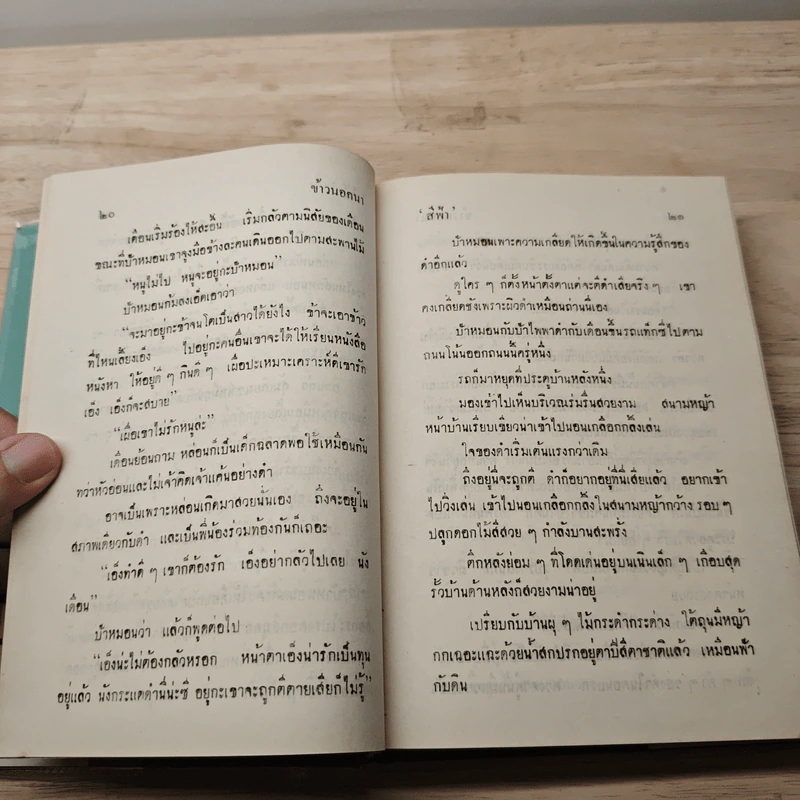 ๒๐
ข้าวนอกนา
เดือนเริ่มร้องไห้สะอื้น เริ่มกลัวตามนิสัยของเดือน
ขณะที่ป้าหมอนเขาจูงมือข้างละคนเดินออกไปตามสะพานไม้
“หนูไม่ไป หนูจะอยู่กะป้าหมอน”
ป้าหมอนก้มลงเอ็ดเอาว่า
“จะมาอยู่กะข้าจนโตเป็นสาวได้ยังไง ข้าจะเอาข้าว
ที่ไหนเลี้ยงเอ็ง ไปอยู่กะคนอื่นเขาจะได้ให้เรียนหนังสือ
หนังหา ให้อยู่ดี ๆ กินดี ๆ เผื่อปะเหมาะเคราะห์ดีเขารัก
เอ็ง เอ็งก็จะสบาย”
“เผื่อเขาไม่รักหนูล่ะ”
เดือนย้อนถาม หล่อนก็เป็นเด็กฉลาดพอใช้เหมือนกัน
ทว่าหัวอ่อนและไม่เจ้าคิดเจ้าแค้นอย่างดำ
อาจเป็นเพราะหล่อนเกิดมาสวยนั่นเอง ถึงจะอยู่ใน
สภาพเดียวกับดำ และเป็นพี่น้องร่วมท้องกันก็เถอะ
“เอ็งทำดี ๆ เขาก็ต้องรัก เอ็งอย่ากลัวไปเลย นัง
เดือน”
ป้าหมอนว่า แล้วก็พูดต่อไป
“เอ็งน่ะไม่ต้องกลัวหรอก หน้าตาเอ็งน่ารักเป็นทุน
อยู่แล้ว นังกระแตดำนี่น่ะซี อยู่กะเขาจะถูกตีตายเสียก็ไม่รู้”
‘สีฟ้า’
๒๑
ป้าหมอนเพาะความเกลียดให้เกิดขึ้นในความรู้สึกของ
ดำอีกแล้ว
ดูใคร ๆ ก็ตั้งหน้าตั้งตาแต่จะตีดำเสียจริง ๆ เขา
คงเกลียดชังเพราะผิวดำเหมือนถ่านนี่เอง
ป้าหมอนกับป้าไพพาดำกับเดือนขึ้นรถแท็กซี่ไปตาม
ถนนโน้นออกถนนนี้ครู่หนึ่ง
รถก็มาหยุดที่ประตูบ้านหลังหนึ่ง
มองเข้าไปเห็นบริเวณร่มรื่นสวยงาม สนามหญ้า
หน้าบ้านเรียบเขียวน่าเข้าไปนอนเกลือกกลิ้งเล่น
ใจของดำเริ่มเต้นแรงกว่าเดิม
ถึงอยู่นี่จะถูกตี ดำก็อยากอยู่ที่นี่เสียแล้ว อยากเข้า
ไปวิ่งเล่น เข้าไปนอนเกลือกกลิ้งในสนามหญ้ากว้าง รอบ ๆ
ปลูกดอกไม้สีสวย ๆ กำลังบานสะพรั่ง
ตึกหลังย่อม ๆ ที่โดดเด่นอยู่บนเนินเล็ก ๆ เกือบสุด
รั้วบ้านด้านหลังก็สวยงามน่าอยู่
เปรียบกับบ้านผุ ๆ ไม้กระดำกระด่าง ใต้ถุนมีหญ้า
กกเฉอะแฉะด้วยน้ำสกปรกอยู่ตาปีสีตาชาติแล้ว เหมือนฟ้า
กับดิน